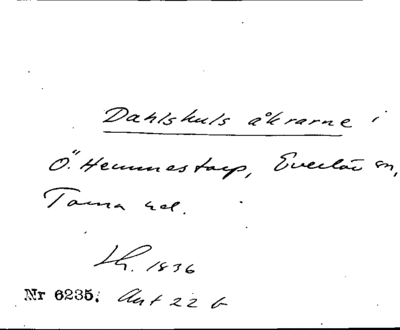 Dahlskuls åkrarne i
Ö. Hemmestorp, Everlöv sn,
Torna hd.
Lh. 1836
Nr 6235. Akt 22 b